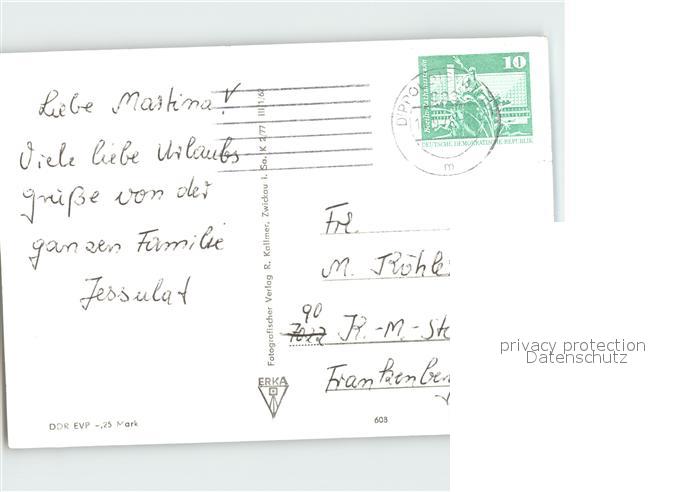 Liebe Martina!
Viele liebe Urlaubs
grüße von der
ganzen Familie
Jessulat
DDR EVP -,25 Mark
Fotografischer Verlag R. Kallmer, Zwickau i. Sa. K 2/77 III/1/62
ERKA
10
DEUTSCHE DEMOKRATISCHE REPUBLIK
m
Frl.
M. Köhle
90
7022 K.-M.-St
Frankenber
608
privacy protection
Datenschutz